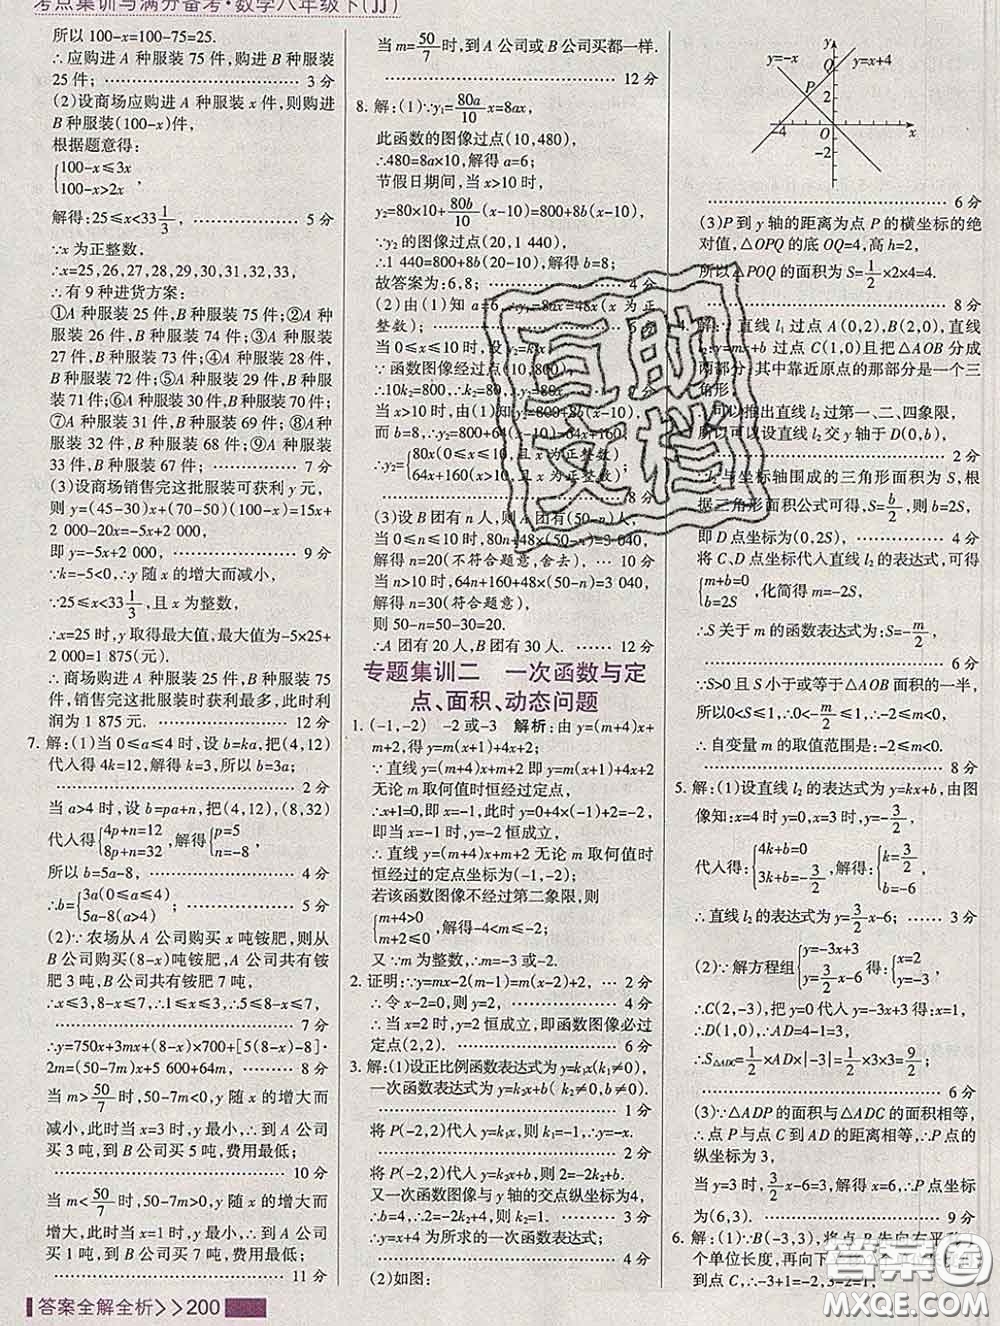 考点集训与满分备考·数学八年级下(JJ)
所以 100-x=100-75=25.
∴应购进 A 种服装 75 件,购进 B 种服装
25 件; 3 分
(2)设商场应购进 A 种服装 x 件,则购进
B 种服装(100-x)件,
根据题意得:
{100-x≤3x
100-x>2x ,
解得:25≤x<33 1/3, 5 分
∵x 为正整数,
∴x=25,26,27,28,29,30,31,32,33,
∴有 9 种进货方案:
①A 种服装 25 件,B 种服装 75 件;②A 种
服装 26 件,B 种服装 74 件;③A 种服装
27 件,B 种服装 73 件;④A 种服装 28 件,
B 种服装 72 件;⑤A 种服装 29 件,B 种服
装 71 件;⑥A 种服装 30 件,B 种服装 70 件;
⑦A 种服装 31 件,B 种服装 69 件;⑧A 种
服装 32 件,B 种服装 68 件;⑨A 种服装
33 件,B 种服装 67 件. 7 分
(3)设商场销售完这批服装可获利 y 元,
则 y=(45-30)x+(70-50)(100-x)=15x+
2 000-20x=-5x+2 000,
即 y=-5x+2 000. 9 分
∵k=-5<0,∴y 随 x 的增大而减小,
∵25≤x<33 1/3,且 x 为整数,
∴x=25 时,y 取得最大值,最大值为-5×25+
2 000=1 875(元).
∴商场购进 A 种服装 25 件,B 种服装 75
件,销售完这批服装时获利最多,此时利
润为 1 875 元. 12 分
7. 解:(1)当 0≤a≤4 时,设 b=ka,把(4,12)
代入得 4k=12,解得 k=3,所以 b=3a;
2 分
当 a>4 时,设 b=pa+n,把(4,12),(8,32)
代入得{4p+n=12
8p+n=32,解得{p=5
n=-8,
所以 b=5a-8, 4 分
∴b={3a(0≤a≤4)
5a-8(a>4) ; 5 分
(2)∵农场从 A 公司购买 x 吨铵肥,则从
B 公司购买(8-x)吨铵肥,A 公司有铵
肥 3 吨,B 公司共有铵肥 7 吨,
∴x≤3,8-x≤7,∴1≤x≤3,5≤8-x≤7,
7 分
∴y=750x+3mx+(8-x)×700+[5(8-x)-8]·
2m=(50-7m)x+5 600+64m, 8 分
当 m>50/7 时,50-7m<0,y 随 x 的增大而
减小,此时当 x=3 时,y 最小,∴到 A 公司
买 3 吨,到 B 公司买 5 吨,费用最低;
10 分
当 m<50/7 时,50-7m>0,y 随 x 的增大而
增大,此时当 x=1 时,y 最小,∴到 A 公司
买 1 吨,到 B 公司买 7 吨,费用最低;
11 分
答案全解全析>>200
当 m=50/7 时,到 A 公司或 B 公司买都一样.
12 分
8. 解:(1)∵y₁=80a/10 x=8ax,
此函数的图像过点(10,480),
∴480=8a×10,解得 a=6;
节假日期间,当 x>10 时,
y₂=80×10+80b/10(x-10)=800+8b(x-10),
∵y₂ 的图像过点(20,1 440),
∴1 440=800+8b(20-10),解得 b=8;
故答案为:6,8; 4 分
(2)由(1)知 a=6, y₁=8ax=48x(x 为正
整数);
当 0≤x≤10 时,设 y₂=kx,
∵函数图像经过点(10,800),
∴10k₂=800,∴k₂=80,
当 x>10 时,由(1)知 y₂=800+8b(x-10),
而 b=8,∴y₂=800+64(x-10)=64x+160,
∴y₂={80x(0≤x≤10,且 x 为正整数)
64x+160(x>10,且 x 为正整数)
8 分
(3)设 B 团有 n 人,则 A 团有(50-n)人,
当 0≤n≤10 时,80n+48×(50-n)=3 040,
解得 n=20(不符合题意,舍去),
当 n>10 时,64n+160+48×(50-n)=3 040,
解得 n=30(符合题意),
则 50-n=50-30=20.
∴A 团有 20 人,B 团有 30 人. 12 分
专题集训二 一次函数与定
点、面积、动态问题
1. (-1,-2) -2或-3 解析:由 y=(m+4)x+
m+2,得 y=m(x+1)+4x+2;
∵直线 y=(m+4)x+m+2 即 y=m(x+1)+4x+2
无论 m 取何值时恒经过定点,
∴x+1=0,即 x=-1,此时 y=0+4×(-1)+2=-2,
即当 x=-1 时,y=-2 恒成立,
∴直线 y=(m+4)x+m+2 无论 m 取何值时
恒经过的定点坐标为(-1,-2);
若该函数图像不经过第二象限,则
{m+4>0
m+2≤0,解得-4<m≤-2;
又∵m 为整数,∴m=-3 或-2.
2. 证明:∵y=mx-2(m-1)=m(x-2)+2, 2 分
∴令 x-2=0,则 y=2, 4 分
∴当 x=2 时,y=2 恒成立,即函数图像必过
定点(2,2). 6 分
3. 解:(1)设正比例函数表达式为 y=k₁x(k₁≠0),
一次函数表达式为 y=k₂x+b( k₂≠0,b≠0).
1 分
将 P(-2,2)代入 y=k₁x,得 k₁=-1,∴y=-x;
2 分
将 P(-2,2)代入 y=k₂x+b,得 2=-2k₂+b,
又∵一次函数图像与 y 轴的交点纵坐标为4,
∴b=4,∴2=-2k₂+4,则 k₂=1. 3 分
∴y=x+4 为所求的一次函数表达式;
4 分
(2)如图:
y=-x y y=x+4
Q
P 2
-4 O x
-2
6 分
(3)P 到 y 轴的距离为点 P 的横坐标的绝
对值,△OPQ 的底 OQ=4,高 h=2,
所以△POQ 的面积为 S=1/2×2×4=4.
8 分
4. 解:∵直线 l₁ 过点 A(0,2),B(2,0),直线
l₂:y=mx+b 过点 C(1,0)且把△AOB 分成
两部分,其中靠近原点的那部分是一个三
角形,
∴可以推出直线 l₂ 过第一、二、四象限,
所以可以设直线 l₂ 交 y 轴于 D(0,b),
2 分
∵l₂ 与坐标轴围成的三角形面积为 S,根
据三角形面积公式可得,S=b/2,则 b=2S,
即 D 点坐标为(0,2S), 4 分
将 C,D 点坐标代入直线 l₂ 的表达式,可得
{m+b=0
b=2S,化简得 m=-2S,
∴S 关于 m 的函数表达式为:S=-m/2;
6 分
∵S>0 且 S 小于或等于△AOB 面积的一半,
所以 0<S≤1,∴0<-m/2≤1,
∴自变量 m 的取值范围是:-2≤m<0.
8 分
5. 解:(1)设直线 l₂ 的表达式为 y=kx+b,由图
像知:x=4 时 y=0,x=3 时,y=-3/2,
代入得:{4k+b=0
3k+b=-3/2,解得:{k=3/2
b=-6,
∴直线 l₂ 的表达式为 y=3/2 x-6; 3 分
(2)∵解方程组{y=-3x+3
y=3/2 x-6得:{x=2
y=-3,
∴C(2,-3),把 y=0 代入 y=-3x+3 得 x=1,
∴D(1,0),∴AD=4-1=3,
∴S△ADC=1/2×AD×|-3|=1/2×3×3=9/2;
6 分
(3)∵△ADP 的面积与△ADC 的面积相等,
∴点 P 到 AD 的距离相等,∴P点的
纵坐标为 3,
当 y=3 时,3/2 x-6=3,解得 x=6,∴P 点坐标
为(6,3). 9 分
6. 解:(1)∵B(-3,3),将点 B 先向右平移
个单位长度,再向下
到点 C,∴-3+1=-2,3-
互助文档
答案圈
MXQE.COM